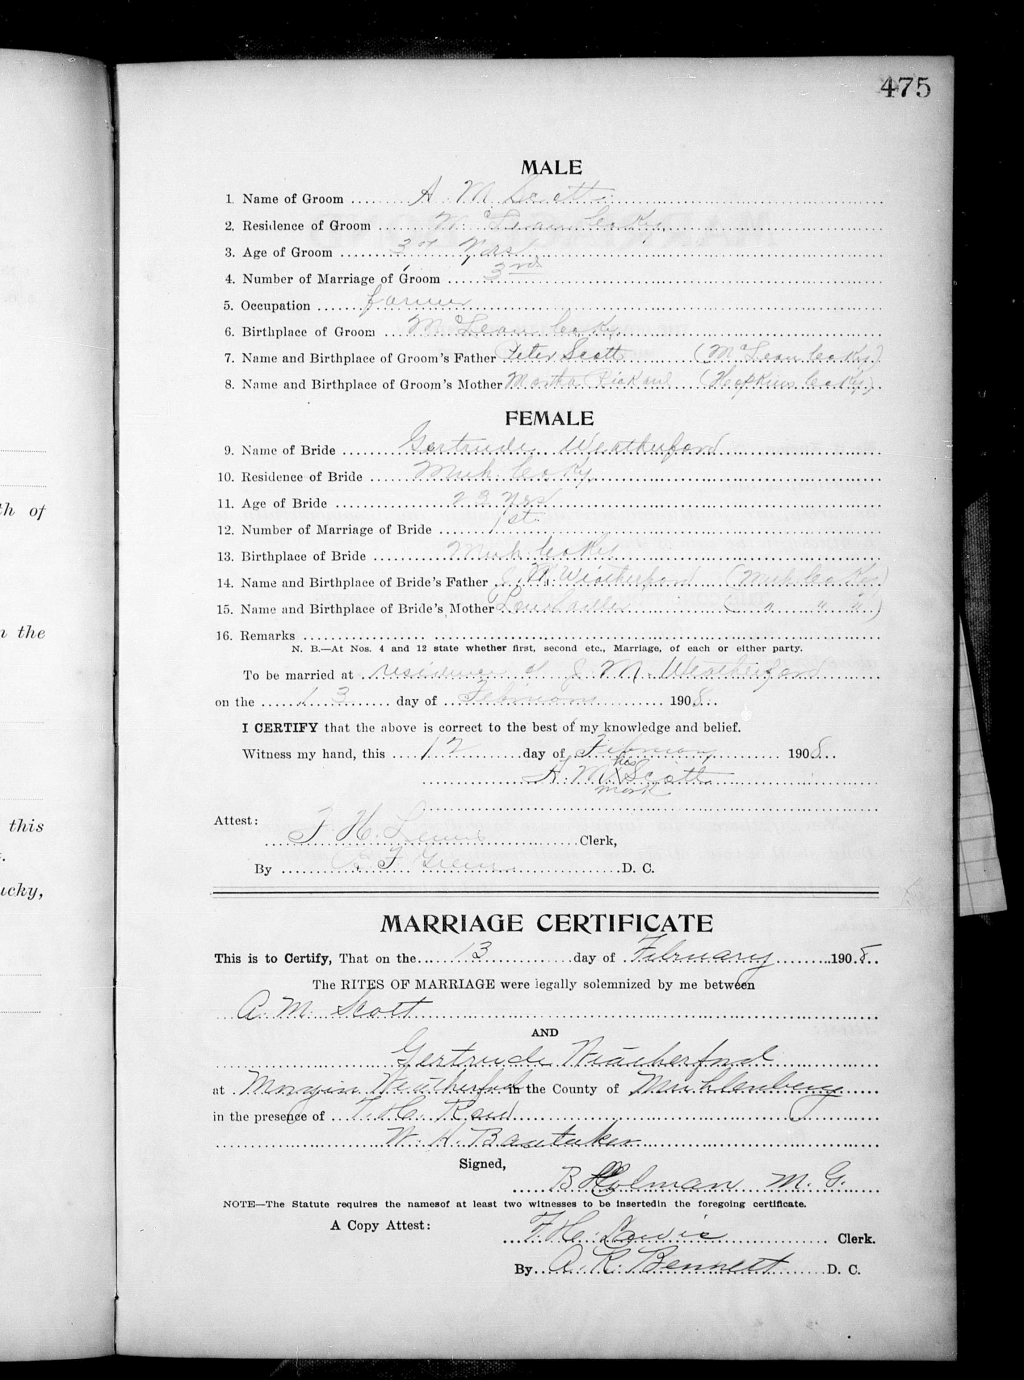 475
MALE
1. Name of Groom A M Scott
2. Residence of Groom McLean Co Ky
3. Age of Groom 37 Yrs
4. Number of Marriage of Groom 3rd
5. Occupation farmer
6. Birthplace of Groom McLean Co Ky
7. Name and Birthplace of Groom's Father Peter Scott (McLean Co Ky)
8. Name and Birthplace of Groom's Mother Martha (Hopkins Co Ky)
FEMALE
9. Name of Bride Gertrude Weatherford
10. Residence of Bride Muh Co Ky
11. Age of Bride 23 Yrs
12. Number of Marriage of Bride 1st
13. Birthplace of Bride Muh Co Ky
14. Name and Birthplace of Bride's Father J. M. Weatherford (Muh Co Ky)
15. Name and Birthplace of Bride's Mother ( " " " )
16. Remarks
N. B.—At Nos. 4 and 12 state whether first, second etc., Marriage, of each or either party.
To be married at residence of J M. Weatherford
on the 13 day of February 1908
I CERTIFY that the above is correct to the best of my knowledge and belief.
Witness my hand, this 12 day of February 1908
his
A. M. X Scott
mark
Attest:
F H. Lewis Clerk,
By F Green D. C.
MARRIAGE CERTIFICATE
This is to Certify, That on the 13 day of February 1908
The RITES OF MARRIAGE were legally solemnized by me between
A. M. Scott
AND
Gertrude Weatherford
at Morgin Weatherford in the County of Muhlenberg
in the presence of T. H.
W. H.
Signed,
B Holman M. G.
NOTE—The Statute requires the namesof at least two witnesses to be insertedin the foregoing certificate.
A Copy Attest:
F. H. Lewis Clerk.
By A. R. Bennett D. C.
th of
n the
this
ucky,